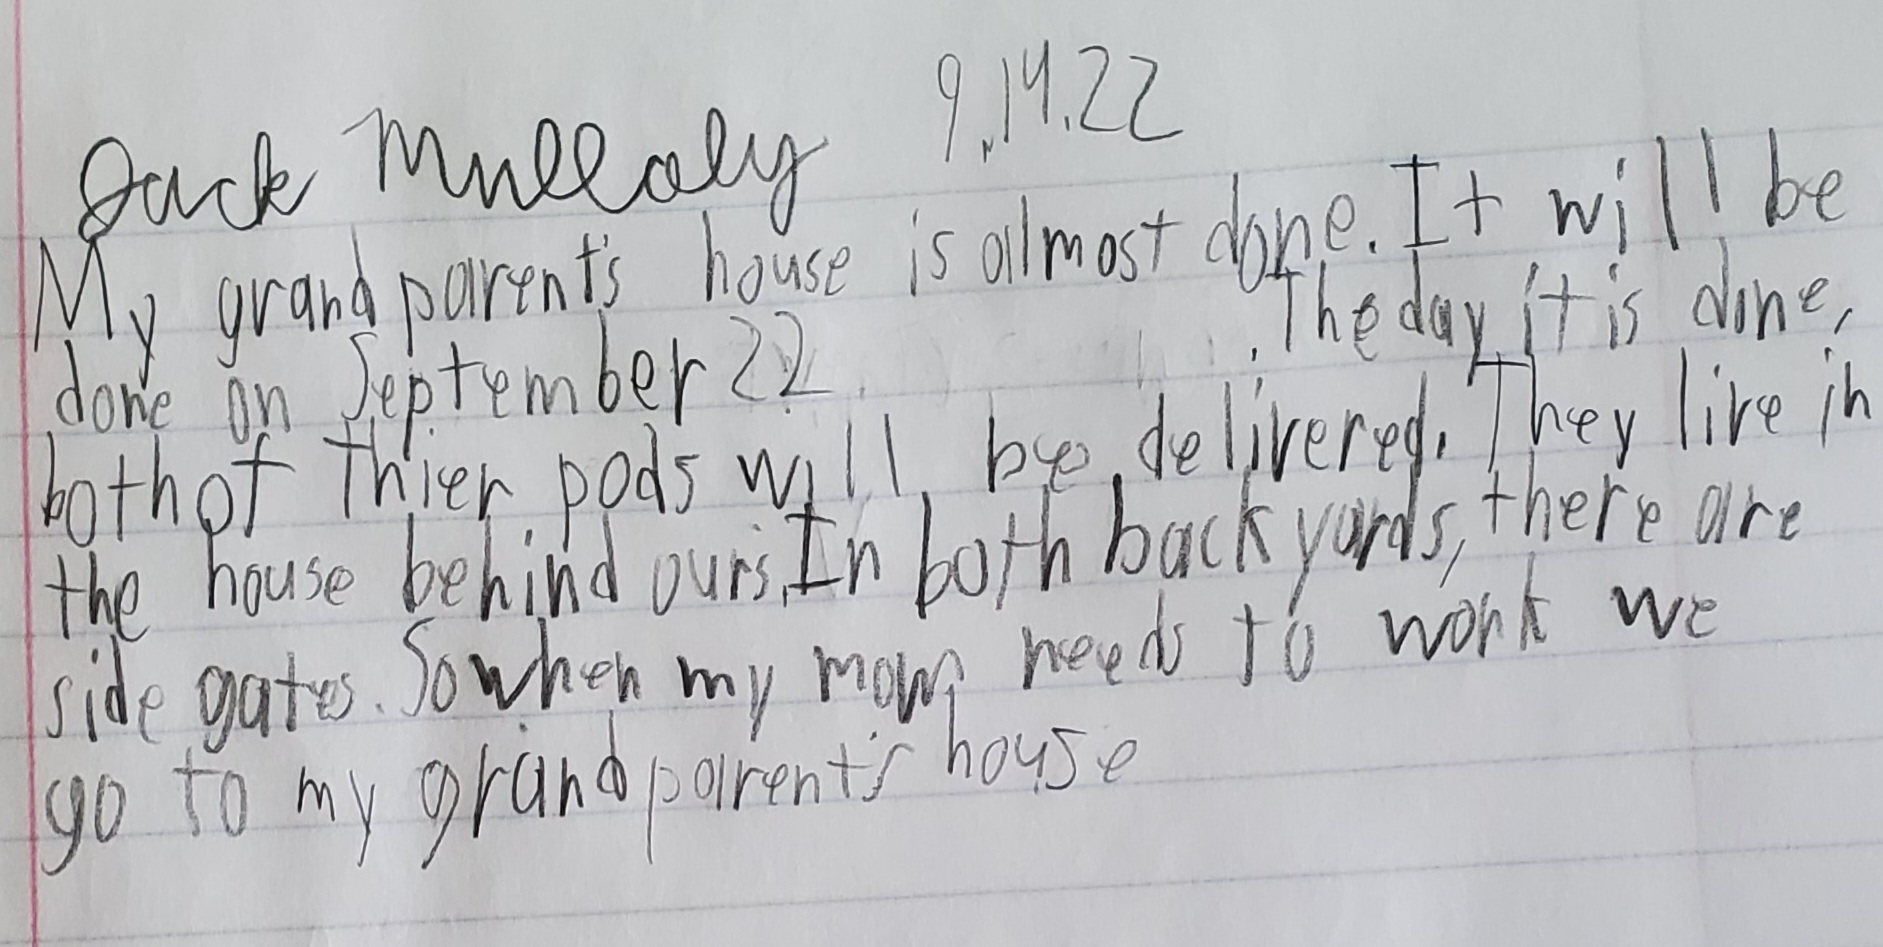 Jack Mullaly 9.14.22
My grandparent's house is almost done. It will be
done on September 22. The day it is done,
both of thier pods will be delivered. They live in
the house behind ours. In both backyards, there are
side gates. So when my mom needs to work we
go to my grandparent's house